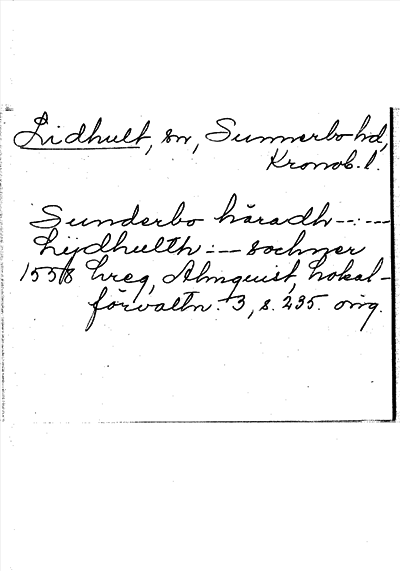 Lidhult, sn, Sunnerbo hd,
Kronob. l.
Sunderbo häradh --:--
Lijdhulth :- sochner
1558 hreg, Almquist, Lokal-
förvaltn. 3, s. 235. orig.